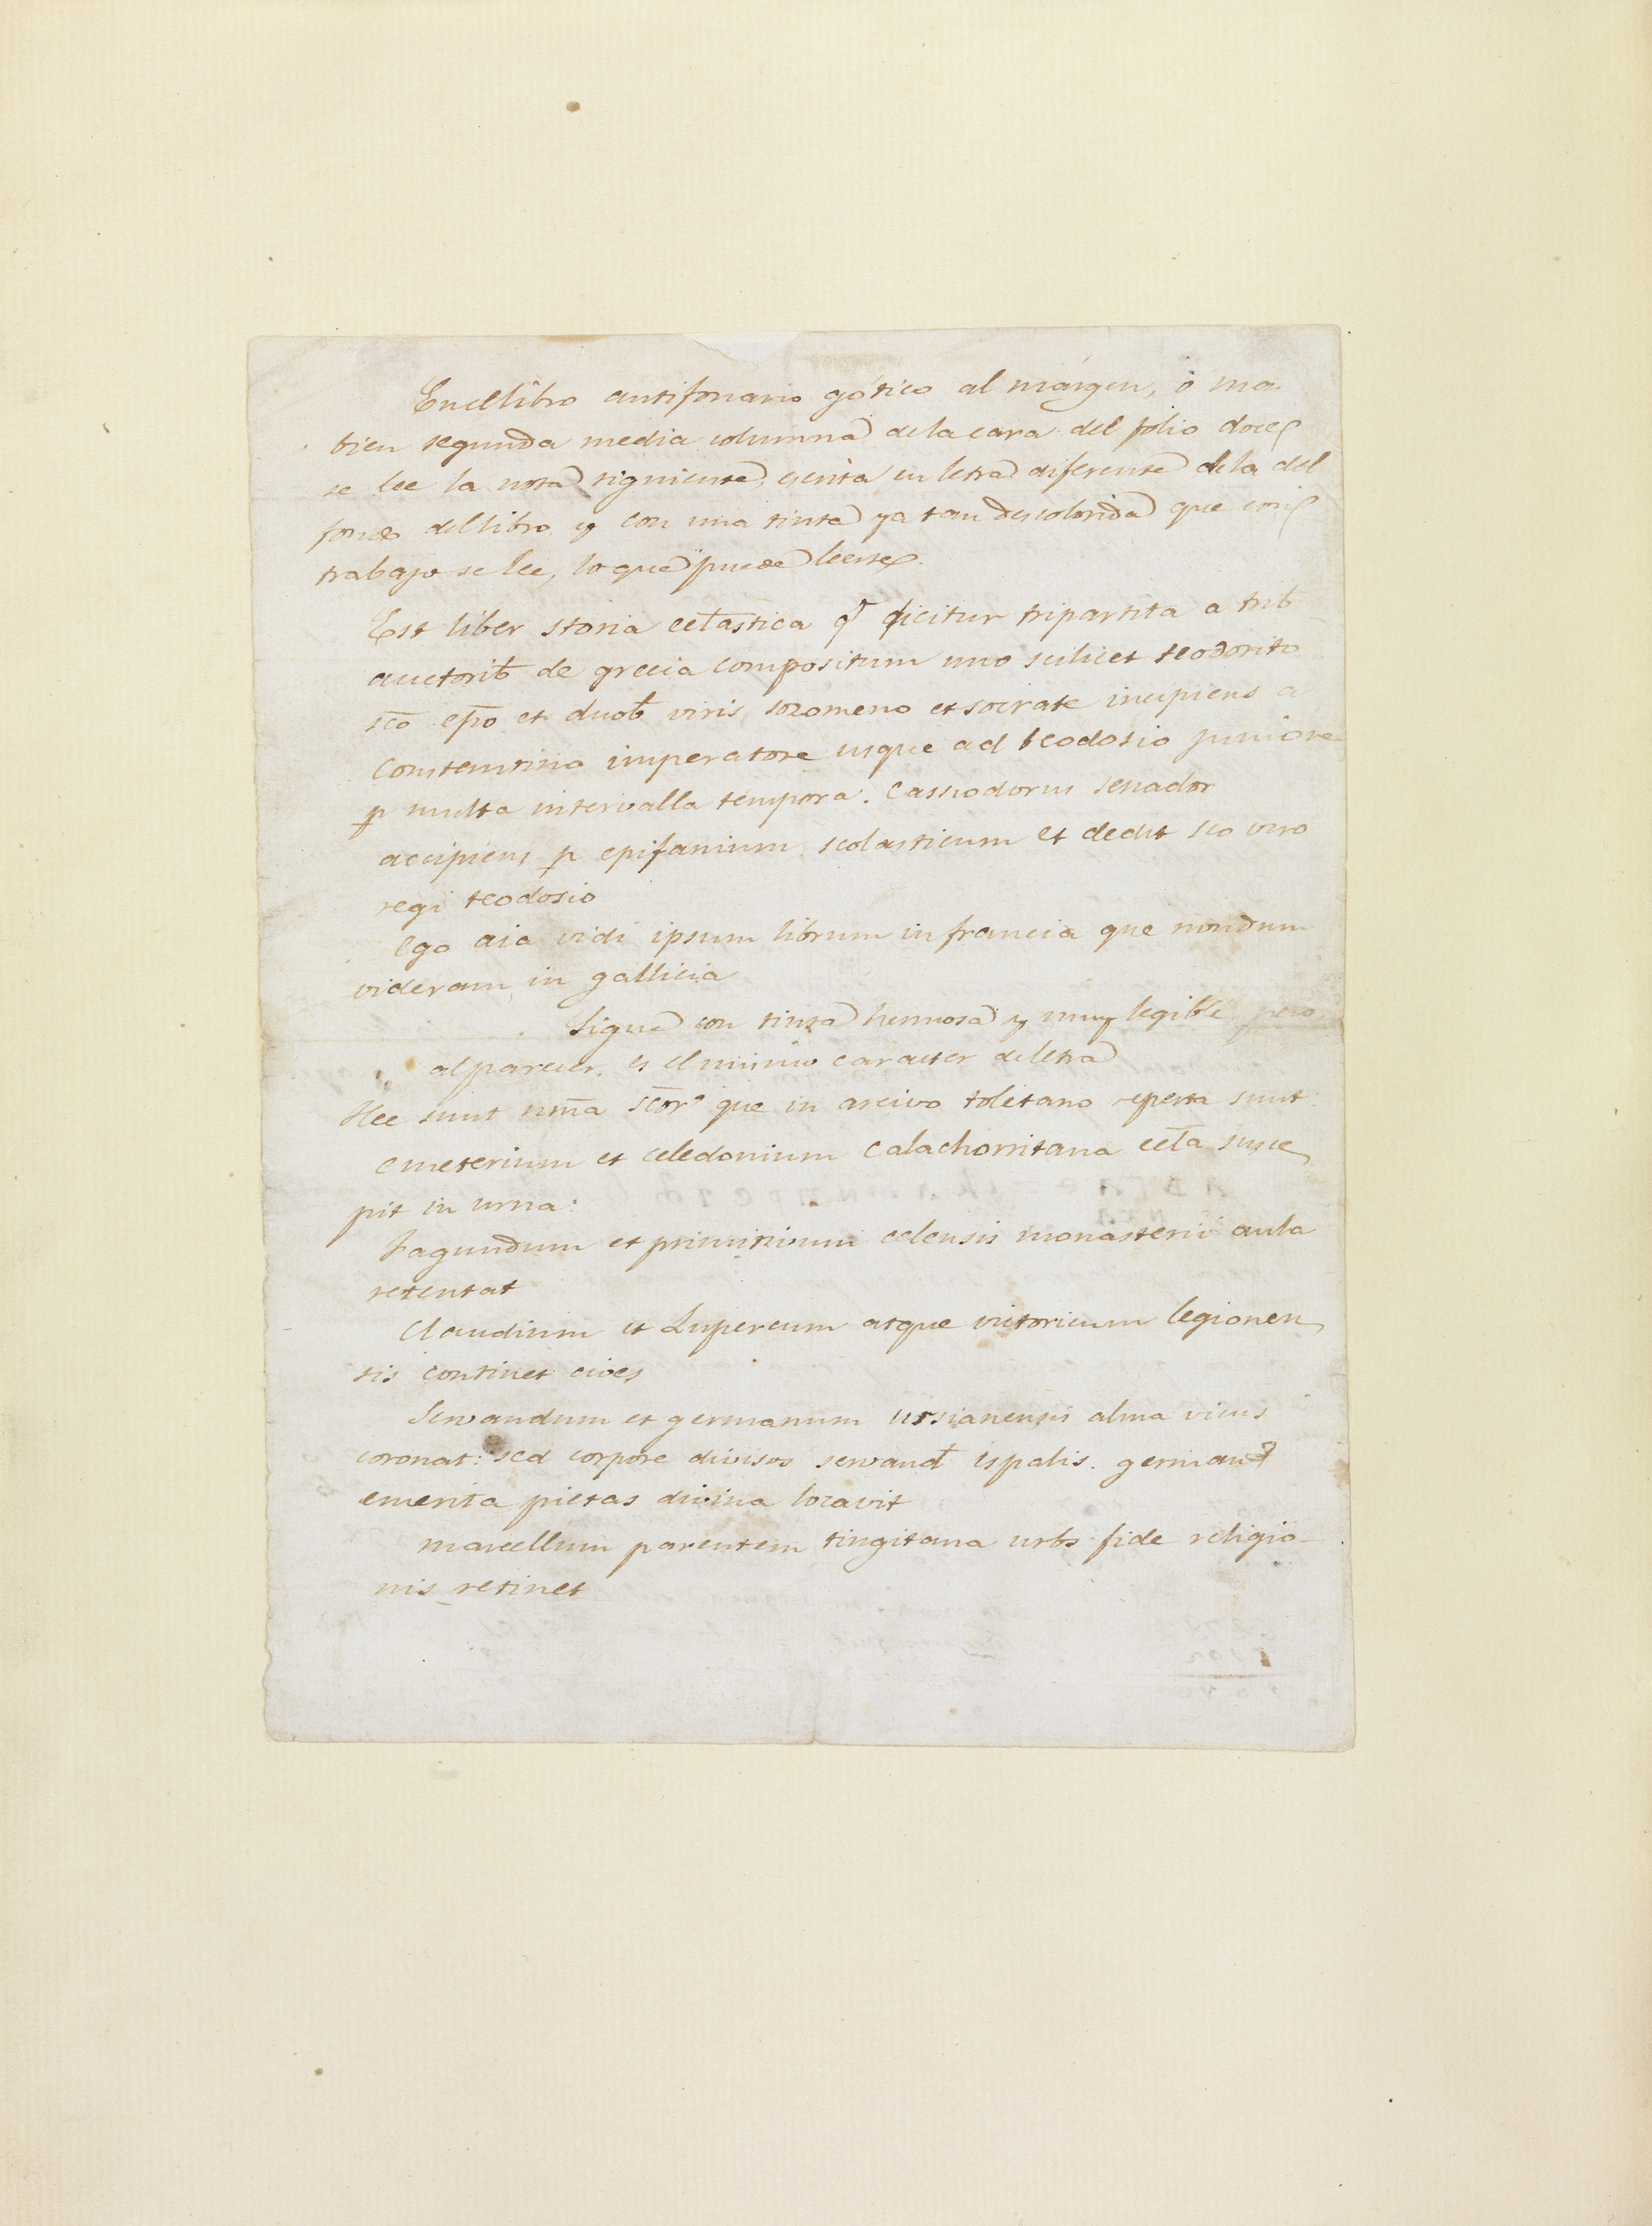 En el libro antifonario gótico al márgen, ó mas
bien segunda media columna de la cara del folio doce
se lee la nota siguiente, escrita en letra diferente de la del
fondo del libro y con una tinta ya tan descolorida que con
trabajo se lee, lo que puede leerse.
Est liber storia eclastica q dicitur tripartita a trib
auctorib de grecia compositum uno scilicet teodorito
sco epo et duob viris sozomeno et socrate incipiens a
Constantino imperatore usque ad teodosio juniore
p multa intervalla tempora. Cassiodorus senador
accipiens p epifanium scolasticum et dedit sco viro
regi teodosio
Ego aia vidi ipsum librum in francia que nondum
videram in gallicia
Sigue con tinta hermosa y muy legible pero
al parecer, es el mismo caracter de letra
Hec sunt nma scor que in arcivo toletano reperta sunt:
emeterium et celedonium calachorritana ecla susce
pit in urna:
fagundum et primitivum celensis monasterii aula
retentat
Claudium et Lupercum atque victoricum legionen
sis continet cives
Servandum et germanum ursianensis alma vicus
coronat: sed corpore divisos servand ispalis. germand
emerita pietas divina locavit
marcellum parentem tingitana urbs fide religio-
nis retinet